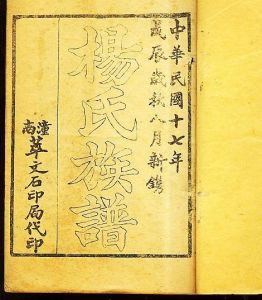 中華民國十七年
戊辰歲秋八月新鐫
楊氏族譜
潼南
萃文石印局代印